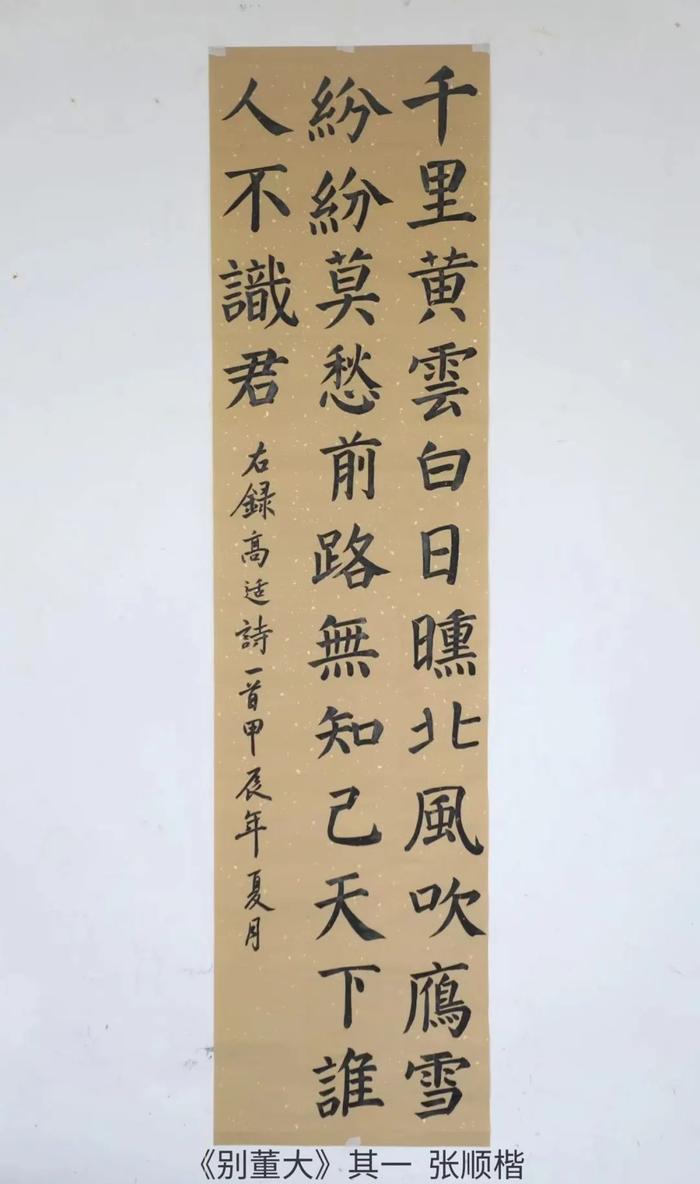 千里黄雲白日曛北風吹鴈雪
紛紛莫愁前路無知己天下誰
人不識君
右録高适詩一首甲辰年夏月
《别董大》其一 张顺楷